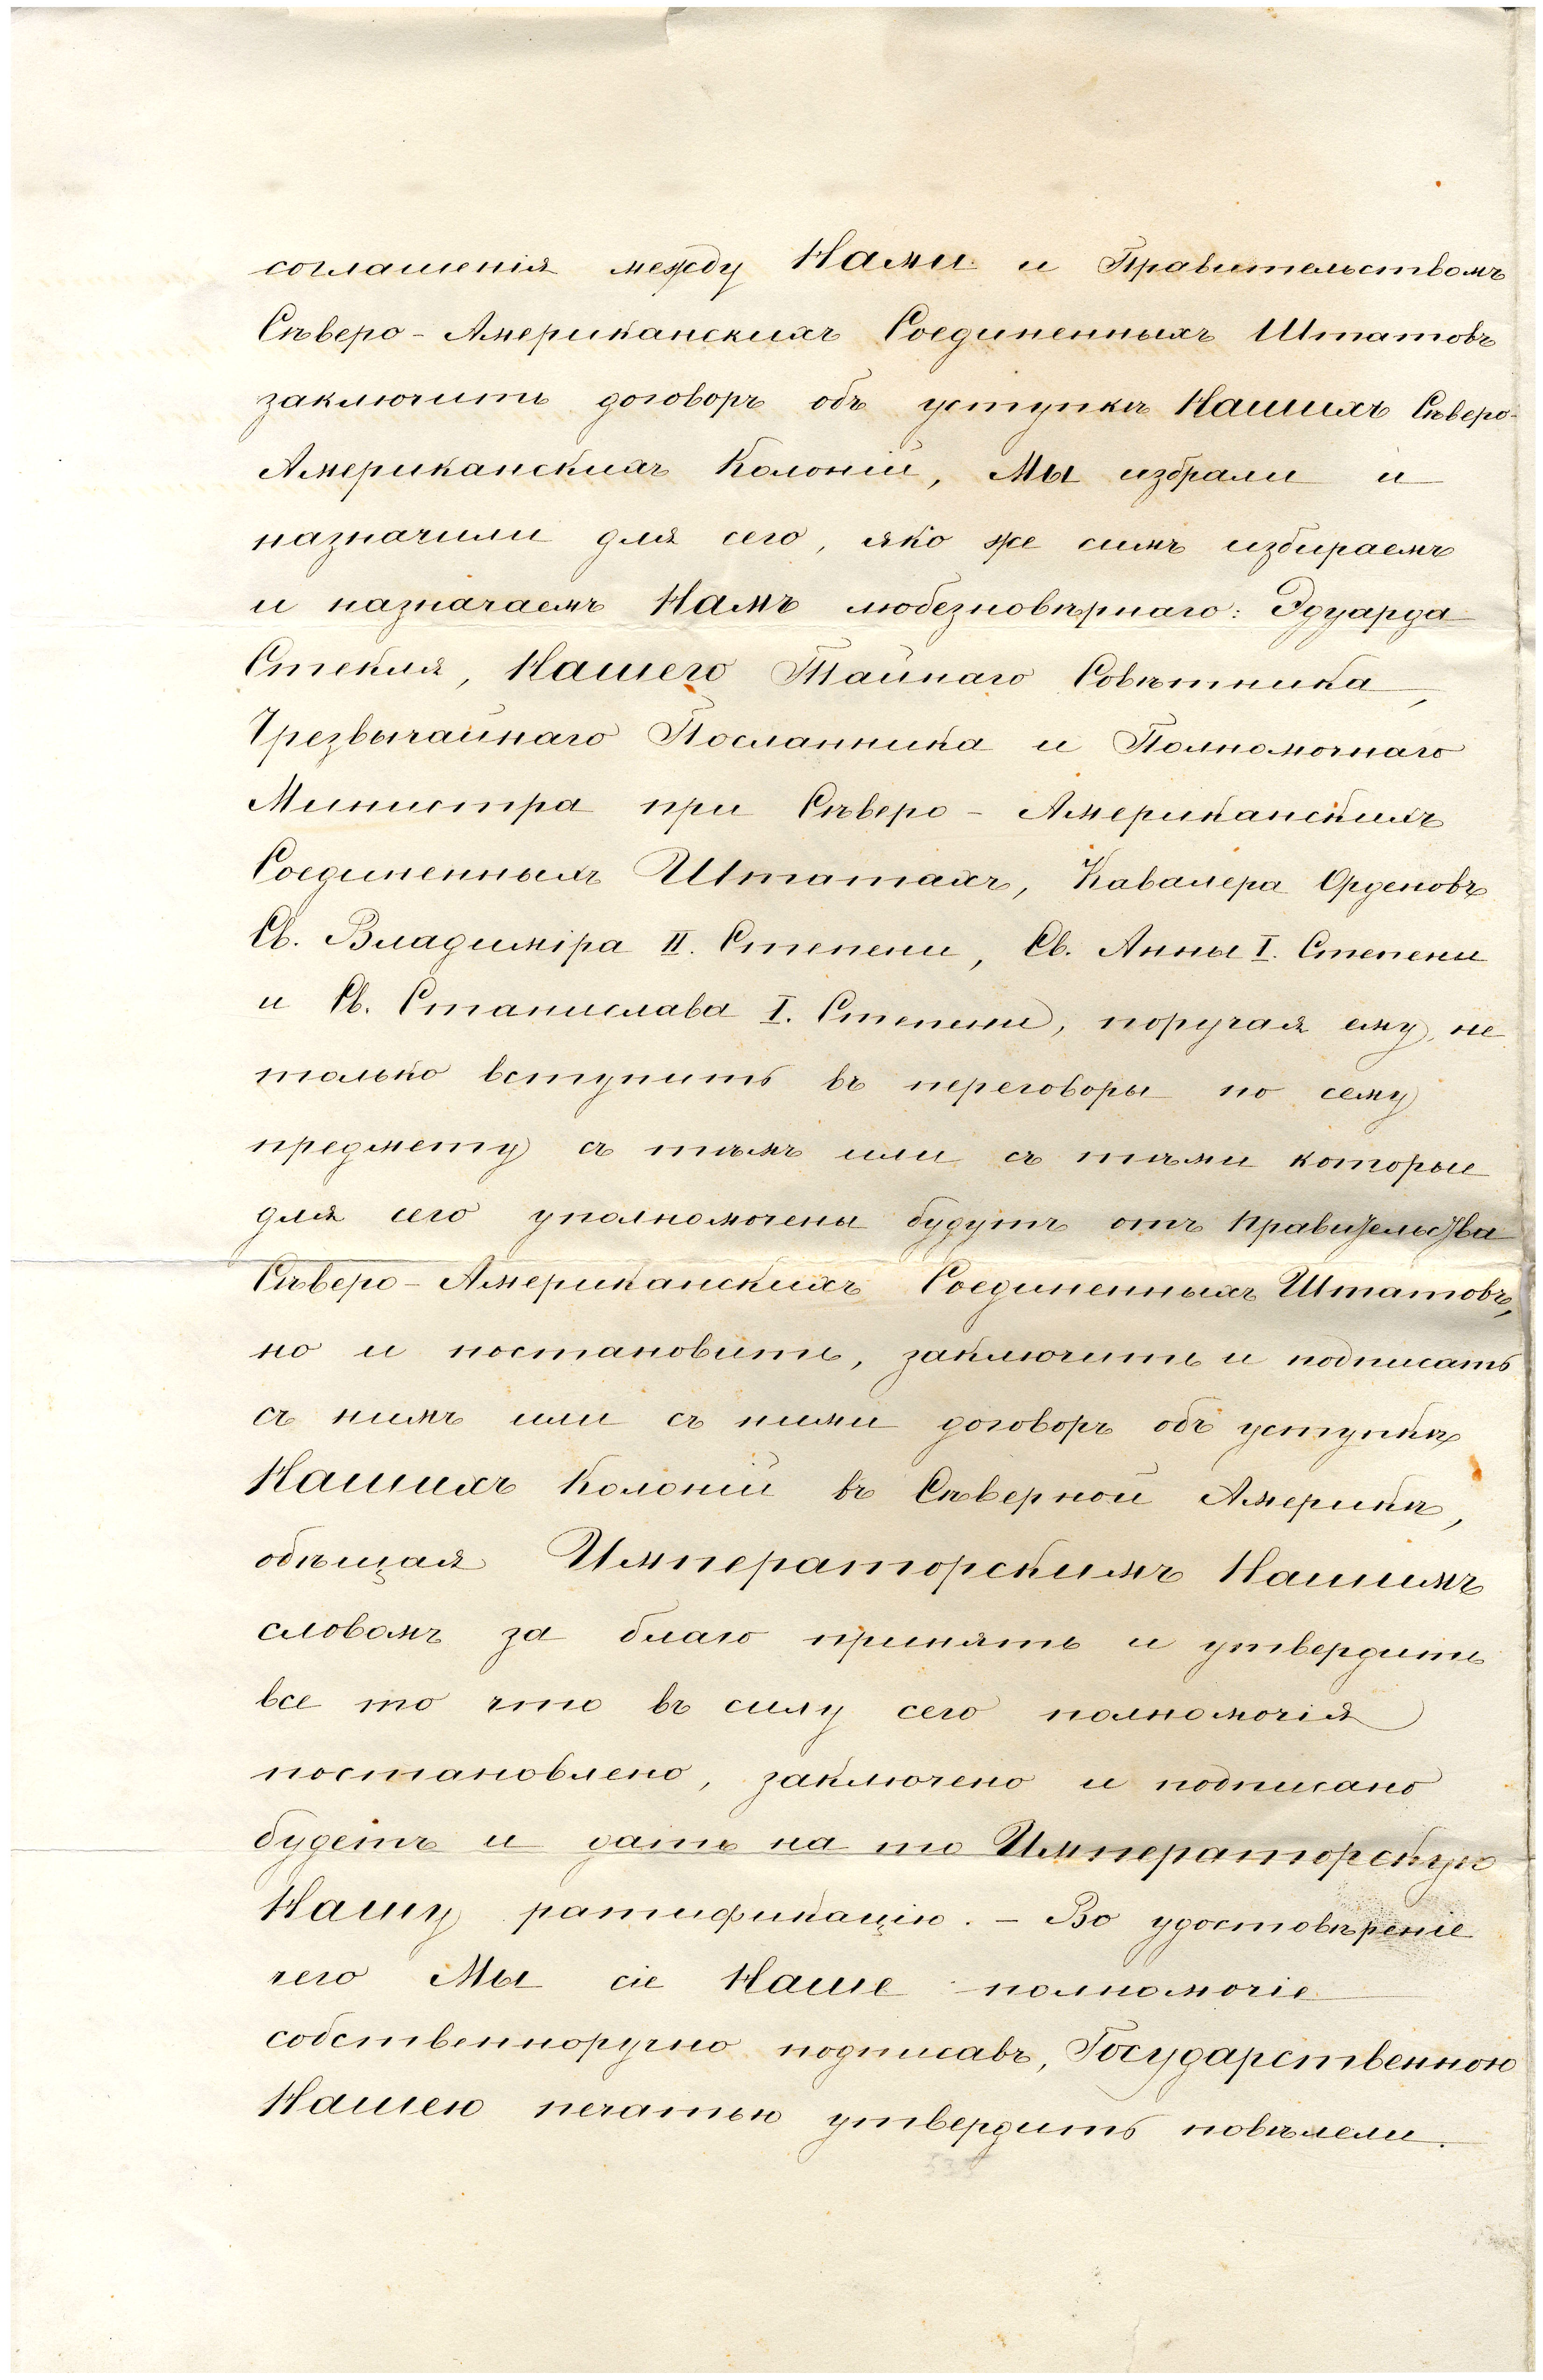 соглашенія между Нами и Правительствомъ
Сѣверо-Американскихъ Соединенныхъ Штатовъ
заключить договоръ объ уступкѣ Нашихъ Сѣверо-
Американскихъ Колоній, Мы избрали и
назначили для сего, яко же симъ избираемъ
и назначаемъ Намъ любезновѣрнаго: Эдуарда
Стекля, Нашего Тайнаго Совѣтника,
Чрезвычайнаго Посланника и Полномочнаго
Министра при Сѣверо-Американскихъ
Соединенныхъ Штатахъ, Кавалера Орденовъ
Св. Владиміра II. Степени, Св. Анны I. Степени
и Св. Станислава I. Степени, поручая ему не
только вступить въ переговоры по сему
предмету съ тѣмъ или съ тѣми которые
для сего уполномочены будутъ отъ Правительства
Сѣверо-Американскихъ Соединенныхъ Штатовъ,
но и постановить, заключить и подписать
съ нимъ или съ ними договоръ объ уступкѣ
Нашихъ Колоній въ Сѣверной Америкѣ,
обѣщая Императорскимъ Нашимъ
словомъ за благо принять и утвердить
все то что въ силу сего полномочія
постановлено, заключено и подписано
будетъ и дать на то Императорскую
Нашу ратификацію. - Во удостовѣреніе
чего Мы сіе Наше полномочіе
собственноручно подписавъ, Государственною
Нашею печатью утвердить повѣлели.